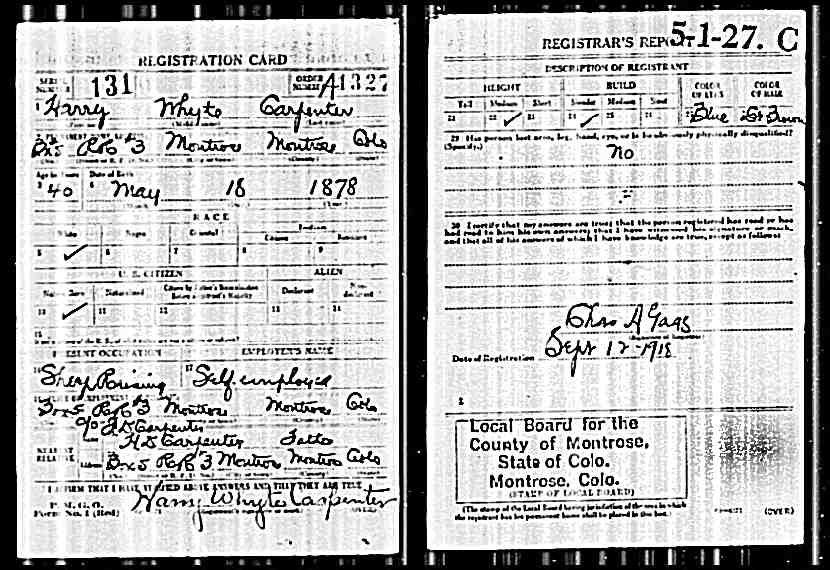 REGISTRATION CARD
SERIAL NUMBER 131 ORDER NUMBER A1327
1 Harry Whyte Carpenter
Box 5 R.F.D #3 Montrose Montrose Colo
Age in Years Date of Birth
3 40 4 May 18 1878
RACE
White Negro Oriental Indian
Citizen
5 ✓ 6 7 8 9
U. S. CITIZEN ALIEN
Native Born Naturalized Declarant Non-declarant
10 ✓ 11 12 13 14
15
PRESENT OCCUPATION EMPLOYER'S NAME
16 Sheep Raising 17 Self employed
Box 5 R.F.D #3 Montrose Montrose Colo
H D Carpenter
NEAREST RELATIVE
Box 5 R.F.D #3 Montrose Montrose Colo
I AFFIRM THAT I HAVE VERIFIED ABOVE ANSWERS AND THAT THEY ARE TRUE
P. M. G. O.
Form No. 1 (Red) Harry Whyte Carpenter (OVER)
REGISTRAR'S REPORT 5-1-27. C
DESCRIPTION OF REGISTRANT
HEIGHT BUILD COLOR OF EYES COLOR OF HAIR
Tall Medium Short Slender Medium Stout
21 22 ✓ 23 24 ✓ 25 26 27 Blue Lt Brown
29 Has person lost arm, leg, hand, eye, or is he obviously physically disqualified?
(Specify.)
No
30 I certify that my answers are true; that the person registered has read or has
had read to him his own answers; that I have witnessed his signature or mark,
and that all of his answers of which I have knowledge are true, except as follows:
Chas A
Date of Registration Sept 12-1918
Local Board for the
County of Montrose,
State of Colo.
Montrose, Colo.
(STAMP OF LOCAL BOARD)
(The stamp of the Local Board having jurisdiction of the area in which
the registrant has his permanent home shall be placed in this box.) (OVER)